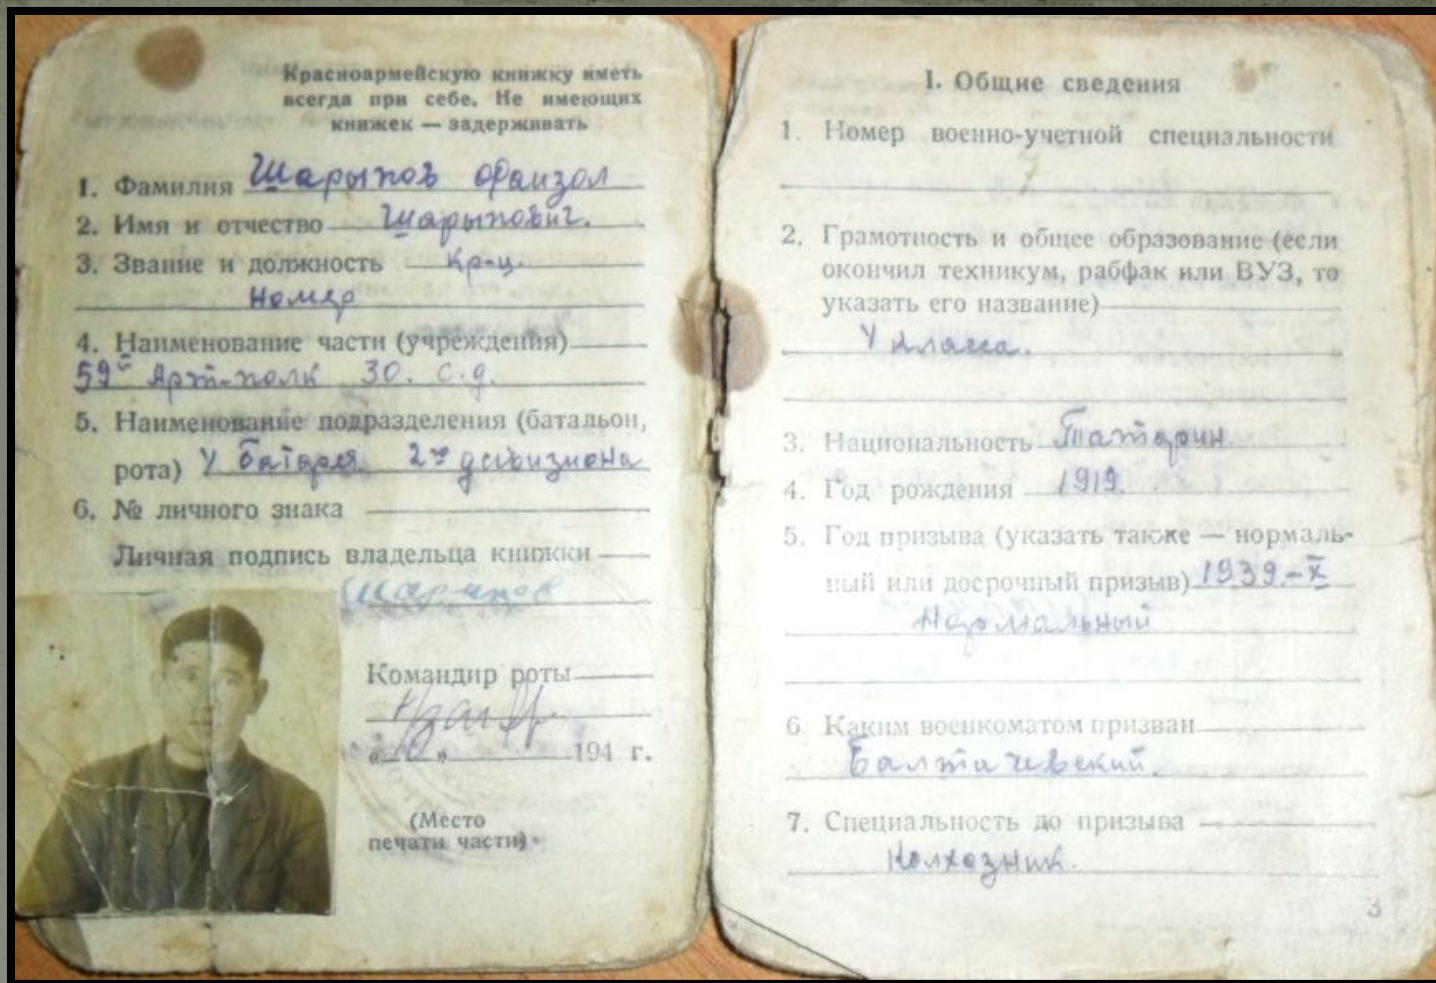 Красноармейскую книжку иметь
всегда при себе. Не имеющих
книжек — задерживать
1. Фамилия Шарыпов Фаизол
2. Имя и отчество Шарыпович.
3. Звание и должность Кр-ц.
Номер
4. Наименование части (учреждения)
59й Арт-полк 30. с.д.
5. Наименование подразделения (батальон,
рота) 4 батарея 2го дивизиона
6. № личного знака
Личная подпись владельца книжки
Шарипов
Командир роты
« » 194 г.
(Место
печати части)
I. Общие сведения
1. Номер военно-учетной специальности
2. Грамотность и общее образование (если
окончил техникум, рабфак или ВУЗ, то
указать его название)
4 класса.
3. Национальность Татарин
4. Год рождения 1919.
5. Год призыва (указать также — нормаль-
ный или досрочный призыв) 1939.-X
Нормальный
6 Каким военкоматом призван
Балтачевский.
7. Специальность до призыва
Колхозник.
3